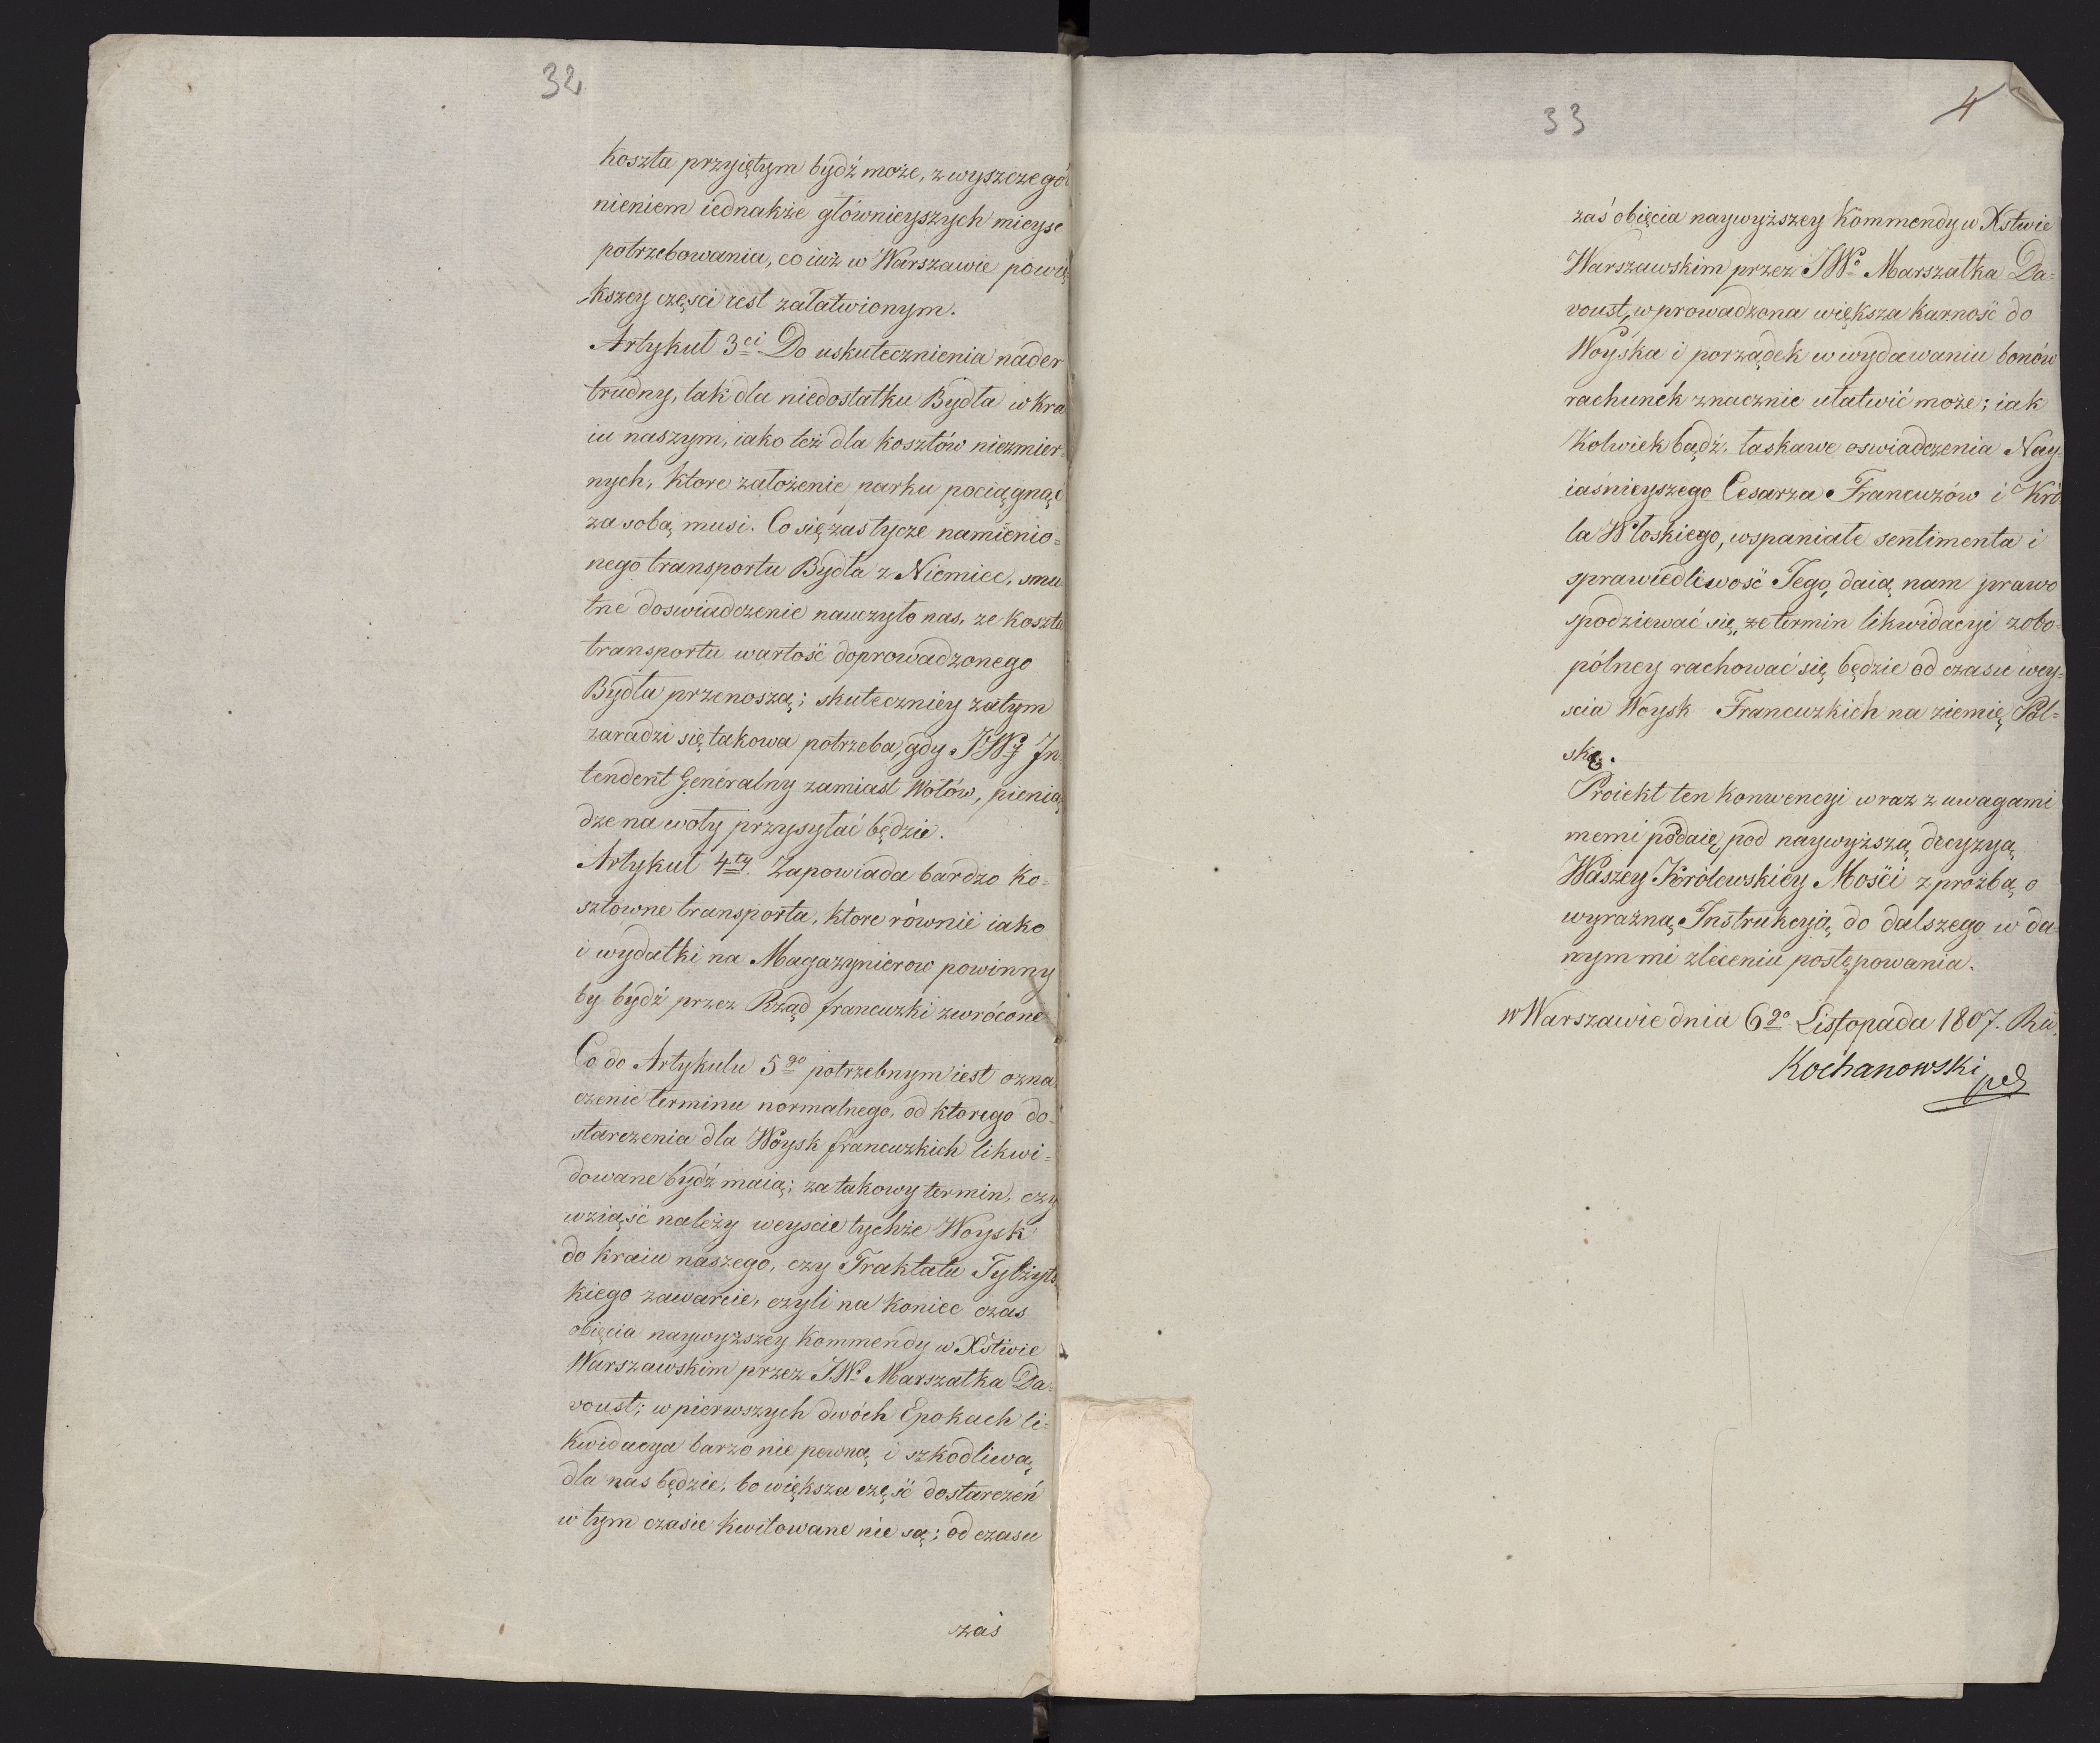 32
koszta przyiętym bydź może, z wyszczegól
nieniem iednakże główneyszych mieysc
potrzebowania, co iuż w Warszawie powię
kszey części iest załatwionym.
Artykuł 3ci Do uskutecznienia nader
trudny, tak dla niedostatku Bydła w Kra
iu naszym, iako też dla kosztów niezmier=
nych, ktore założenie parku pociągnąć
za sobą musi. Co się zas tycze namienio=
nego transportu Bydła z Niemiec, smu
tne doswiadczenie nauczyło nas, ze koszta
transportu wartość doprowadzonego
Bydła przenoszą; skuteczniey zatym
zaradzi się takowa potrzeba, gdy JWy In
tendent Generalny zamiast Wołów, pienią
dze na woły przysyłać będzie.
Artykuł 4ty. Zapowiada bardzo ko=
sztowne transporta, ktore równie iako
i wydatki na Magazynierow powinny
by bydź przez Rząd francuzki zwrócone
Co do Artykułu 5go potrzebnym iest ozna=
czenie terminu normalnego, od ktorego do=
starczenia dla Woysk francuzkich likwi=
dowane bydź maią; za takowy termin, czy
wziąść należy weyscie tychże Woysk
do kraiu naszego, czy Traktatu Tylżyts
kiego zawarcie, czyli na koniec czas
obięcia naywyższey Kommendy w Xstwie
Warszawskim przez JWo Marszałka Da=
voust; w pierwszych dwóch Epokach li=
kwidacya barzo nie pewną i szkodliwą
dla nas będzie, bo większa część dostarczeń
w tym czasie kwitowane nie są; od czasu
zaś
33
4
zaś obięcia naywyższey Kommendy w Xstwie
Warszawskim przez JWo Marszałka Da=
voust, wprowadzona większa karność do
Woyska i porządek w wydawaniu bonów
rachunek znacznie ułatwić może; iak
Kolwiek bądź, łaskawe oswiadczenia Nay=
iaśnieyszego Cesarza Francuzów i Kró
la Włoskiego, wspaniałe sentimenta i
sprawiedliwość Jego, daią nam prawo
spodziewać się, że termin likwidacyi zobo=
pólney rachować się będzie od czasu wey=
scia Woysk Francuzkich na ziemię Pol=
ską.
Proiekt ten konwencyi wraz z uwagami
memi podaię pod naywyższą decyzyą
Waszey Królewskiéy Mości z prozbą o
wyraźną Instrukcyą do dalszego w da=
nym mi zleceniu postępowania.
w Warszawie dnia 6go Listopada 1807. Ru.
Kochanowski